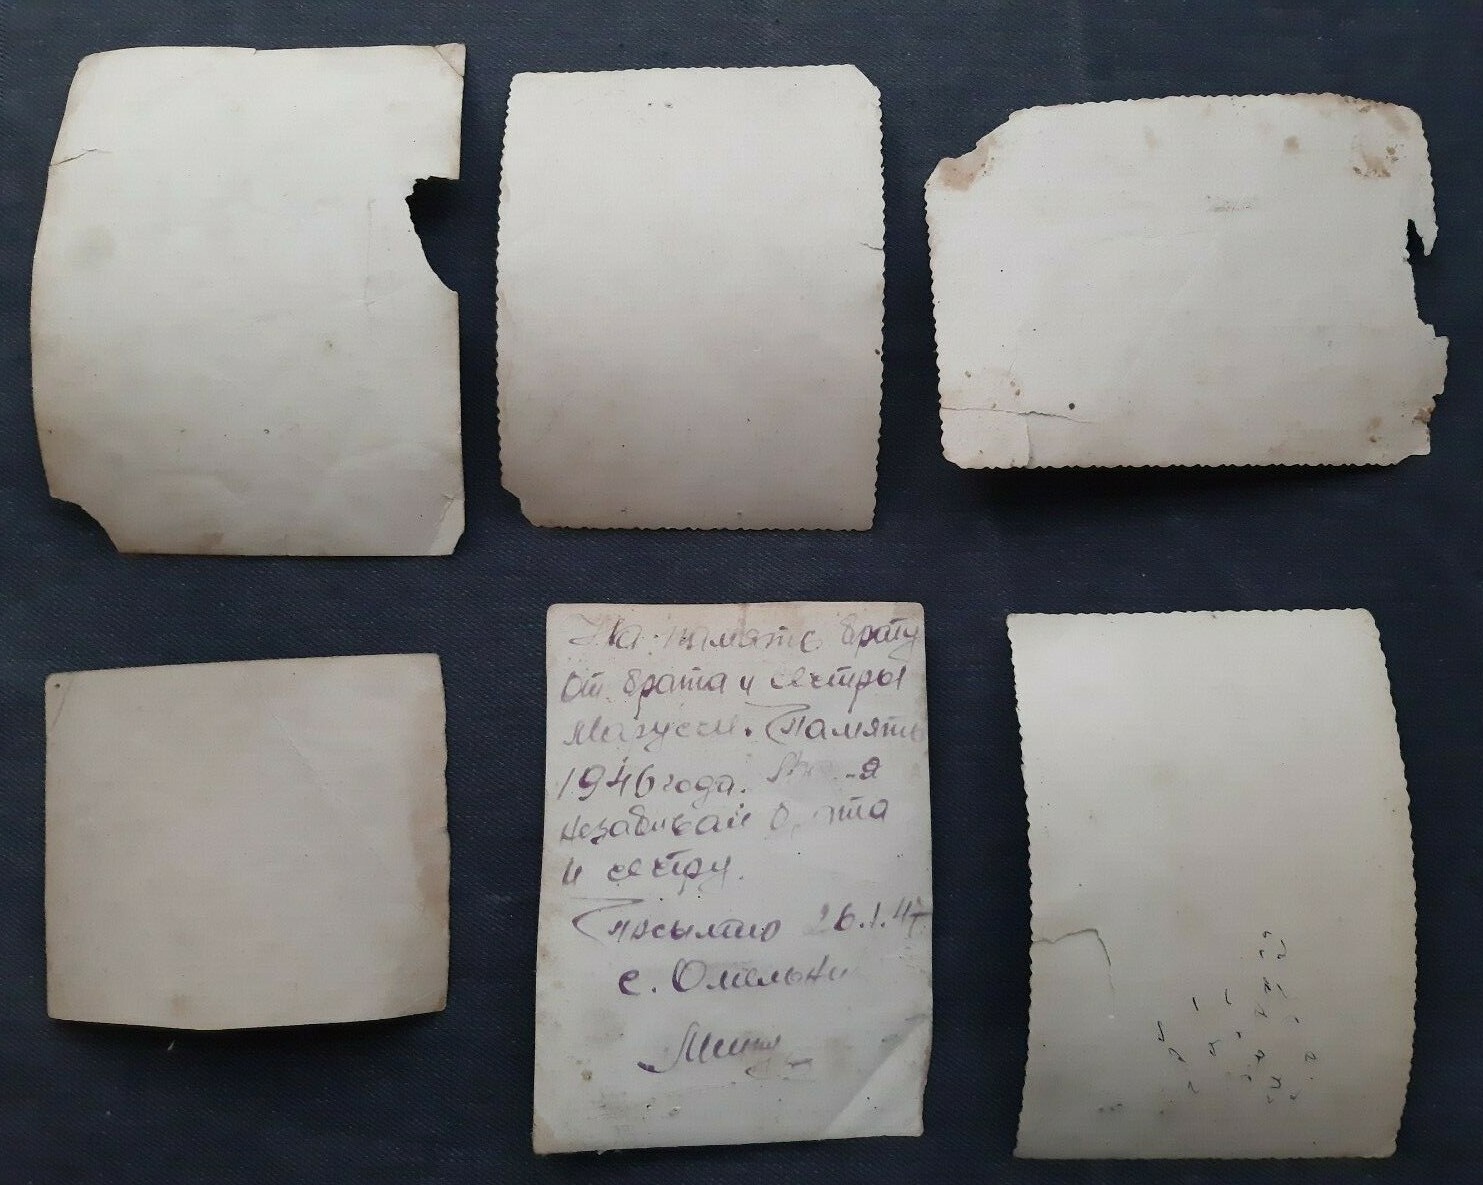 На память брату
От брата и сестры
Маруси. Память
1946 года.
незабывай брата
и сестру.
Посылаю 26.1.47
с. Омельни